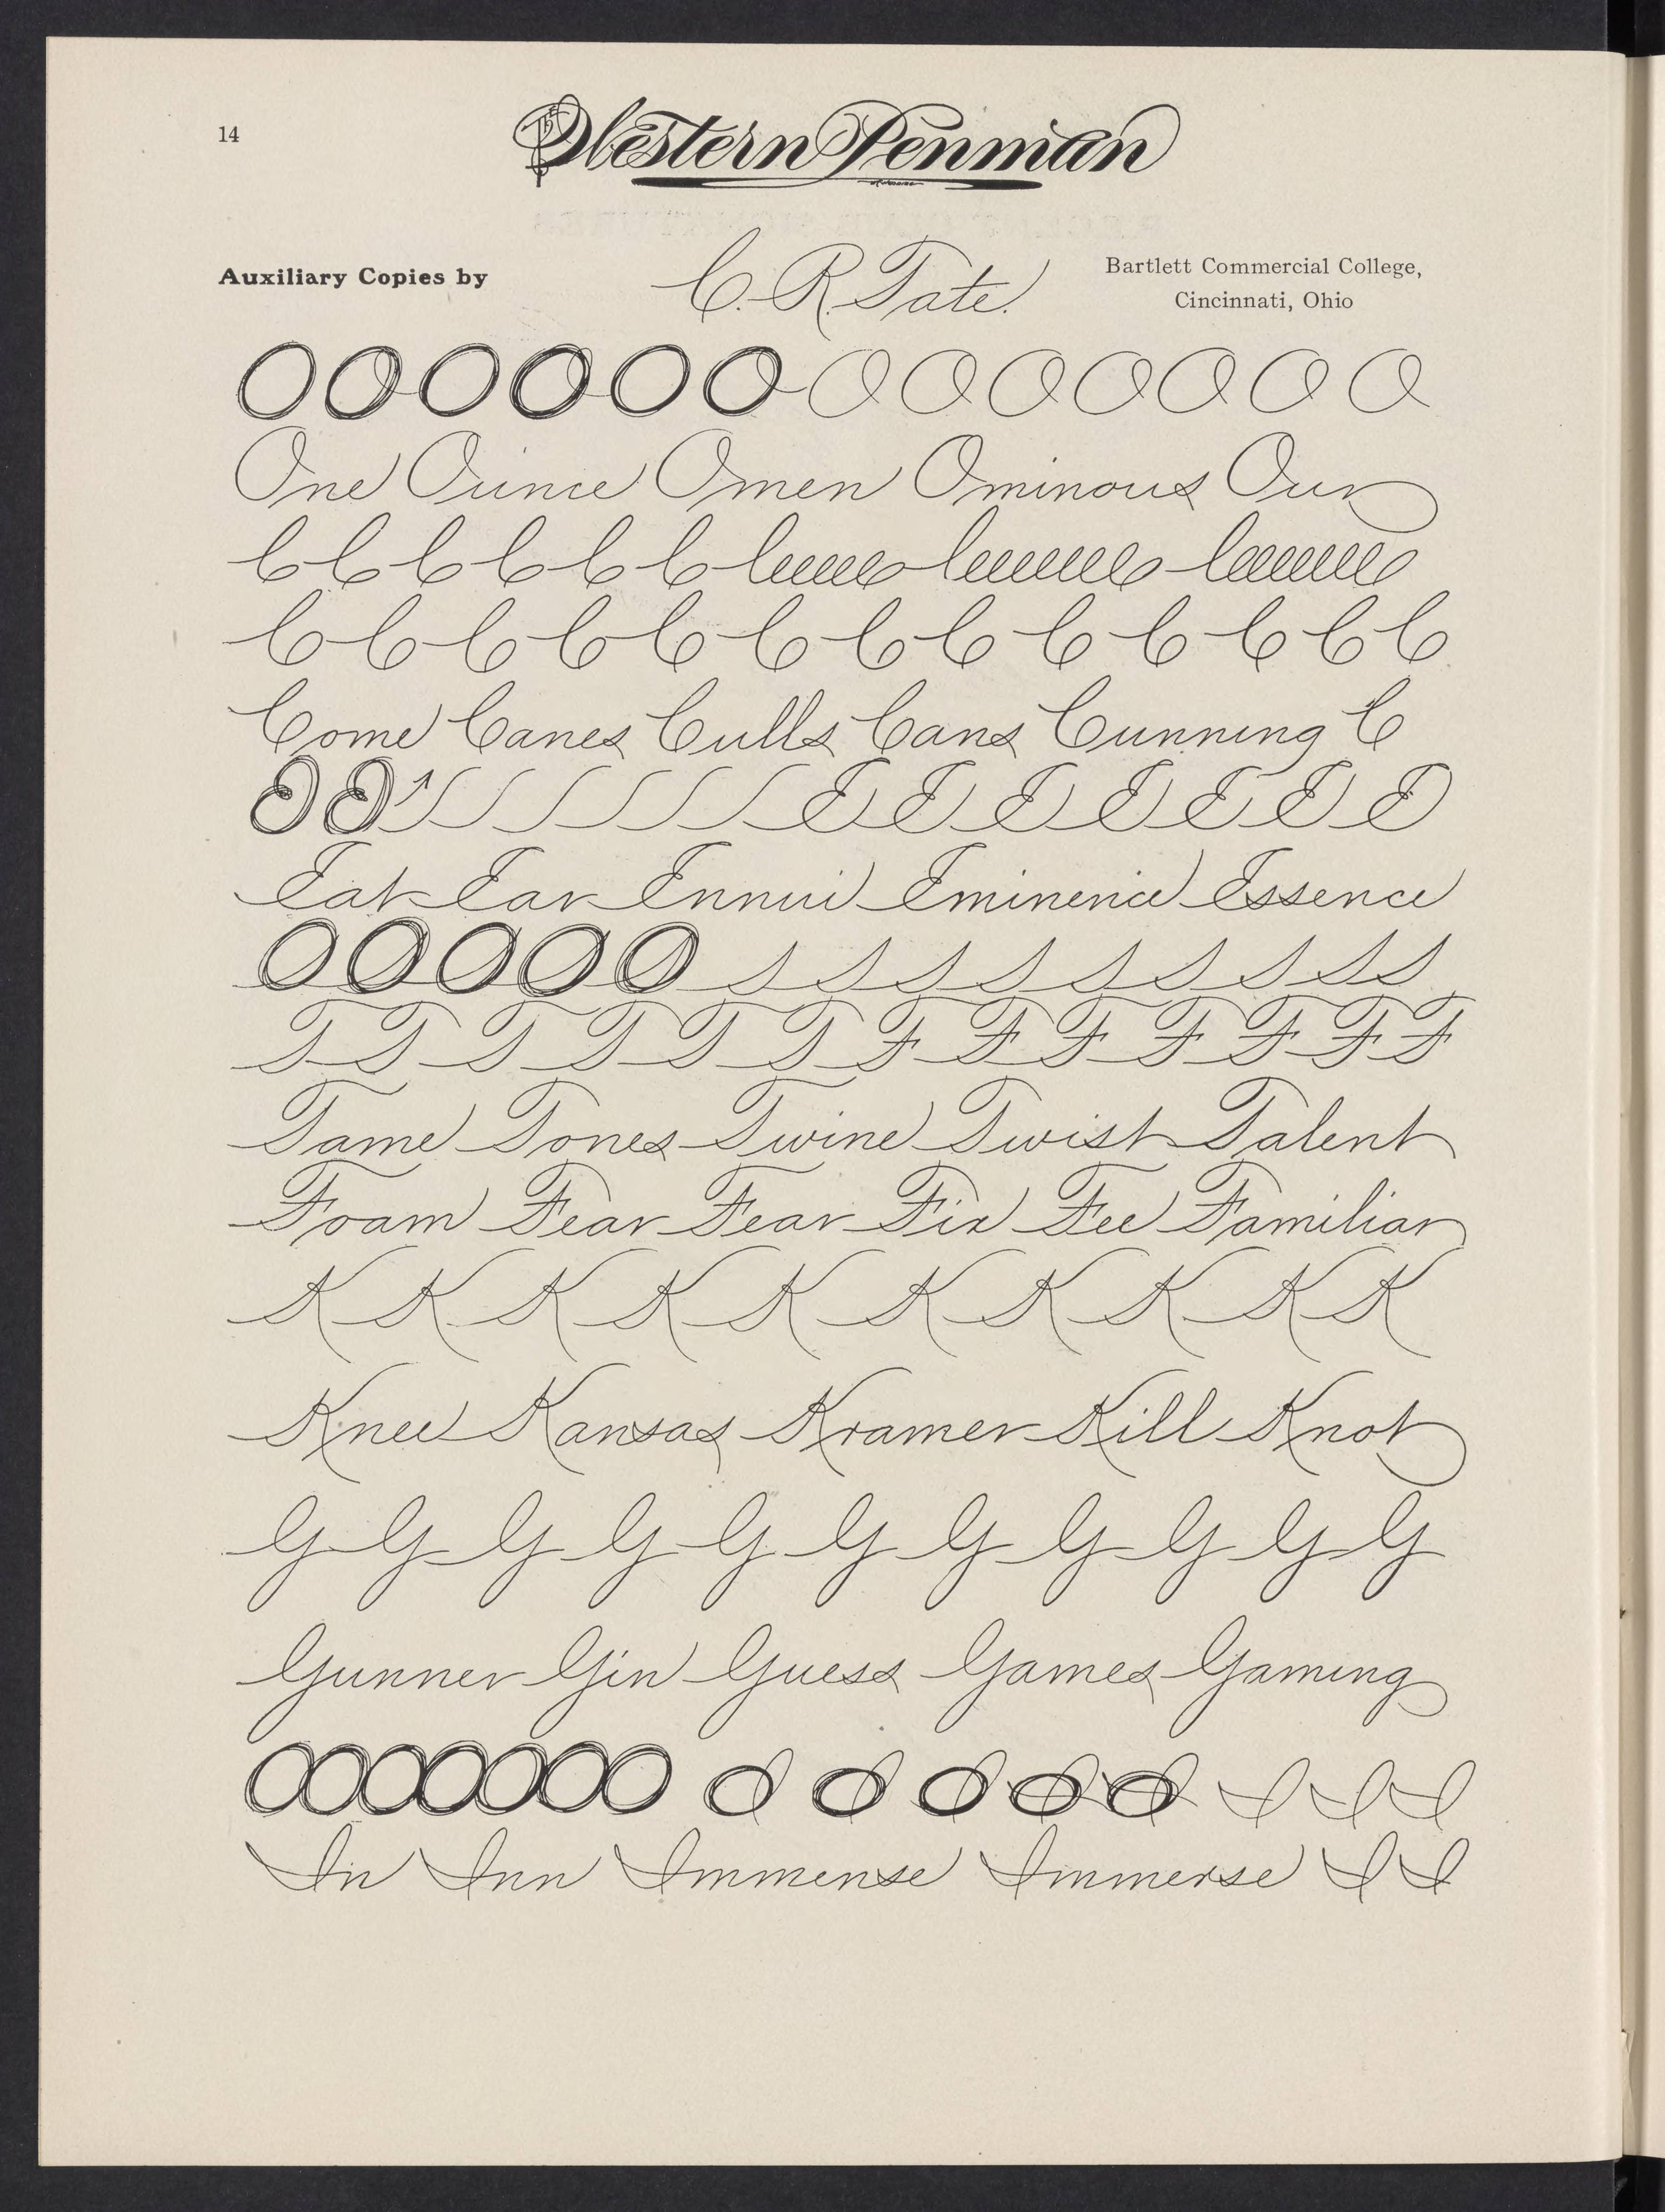 14
Western Penman
Auxiliary Copies by C. R. Tate. Bartlett Commercial College,
Cincinnati, Ohio
O O O O O O O O O O O O O
One Ounce Omen Ominous Our
C C C C C C
C C C C C C C C C C C C C
Come Canes Culls Cans Cunning C
E E E E E E E
Eat Ear Ennui Eminence Essence
O O O O O
T T T T T T F F F F F F F
Tame Tones Twine Twist Talent
Foam Fear Fear Fix Fee Familiar
K K K K K K K K K K
Knee Kansas Kramer Kill Knot
G G G G G G G G G G G
Gunner Gin Guess Games Gaming
I I I
In Inn Immense Immerse I I